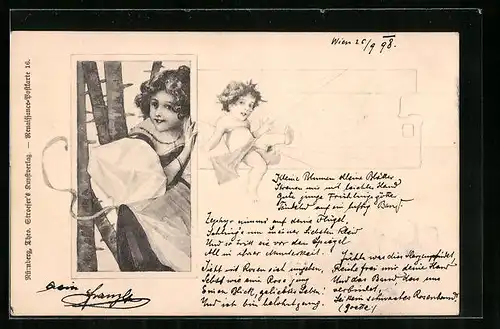 Wien 26/9 98.
Nürnberg, Theo. Stroefer's Kunstverlag. — Renaissance-Postkarte 16.
Kleine Blumen kleine Blätter
Streuen mir mit leichter Hand
Gute junge Frühlingsgötter
Tändelnd auf ein luftig Band.
Zephyr nimms auf deine Flügel,
Schling's um meiner Liebsten Kleid
Und so tritt sie vor den Spiegel
All in ihrer Munterkeit.
Sieht mit Rosen sich umgeben,
Selbst wie eine Rose jung
Einen Blick, geliebtes Leben!
Und ich bin belohnt genug.
Fühle was dies Herz empfindet,
Reiche frei mir deine Hand
Und das Band, das uns
verbindet,
Sei kein schwaches Rosenband!
(Goethe)
Dein
Franzl